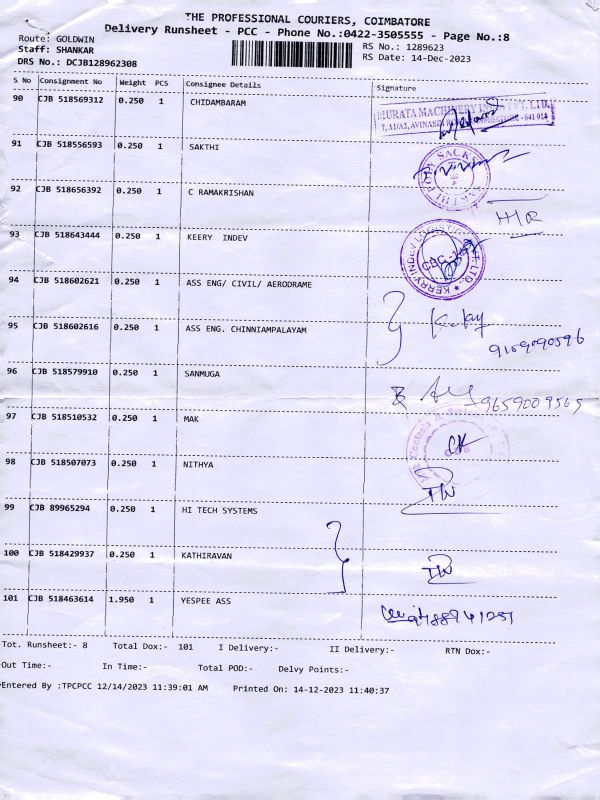 THE PROFESSIONAL COURIERS, COIMBATORE
Delivery Runsheet - PCC - Phone No.:0422-3505555 - Page No.:8
Route: GOLDWIN
Staff: SHANKAR
DRS No.: DCJB128962308
RS No.: 1289623
RS Date: 14-Dec-2023
S No Consignment No Weight PCS Consignee Details Signature
90 CJB 518569312 0.250 1 CHIDAMBARAM
MURATA MACHINERY
91 CJB 518556593 0.250 1 SAKTHI
92 CJB 518656392 0.250 1 C RAMAKRISHAN
H/R
93 CJB 518643444 0.250 1 KEERY INDEV
94 CJB 518602621 0.250 1 ASS ENG/ CIVIL/ AERODRAME
95 CJB 518602616 0.250 1 ASS ENG. CHINNIAMPALAYAM
96 CJB 518579910 0.250 1 SANMUGA
9659009565
97 CJB 518510532 0.250 1 MAK
98 CJB 518507073 0.250 1 NITHYA
99 CJB 89965294 0.250 1 HI TECH SYSTEMS
100 CJB 518429937 0.250 1 KATHIRAVAN
101 CJB 518463614 1.950 1 YESPEE ASS
Tot. Runsheet:- 8 Total Dox:- 101 I Delivery:- II Delivery:- RTN Dox:-
Out Time:- In Time:- Total POD:- Delvy Points:-
Entered By :TPCPCC 12/14/2023 11:39:01 AM Printed On: 14-12-2023 11:40:37